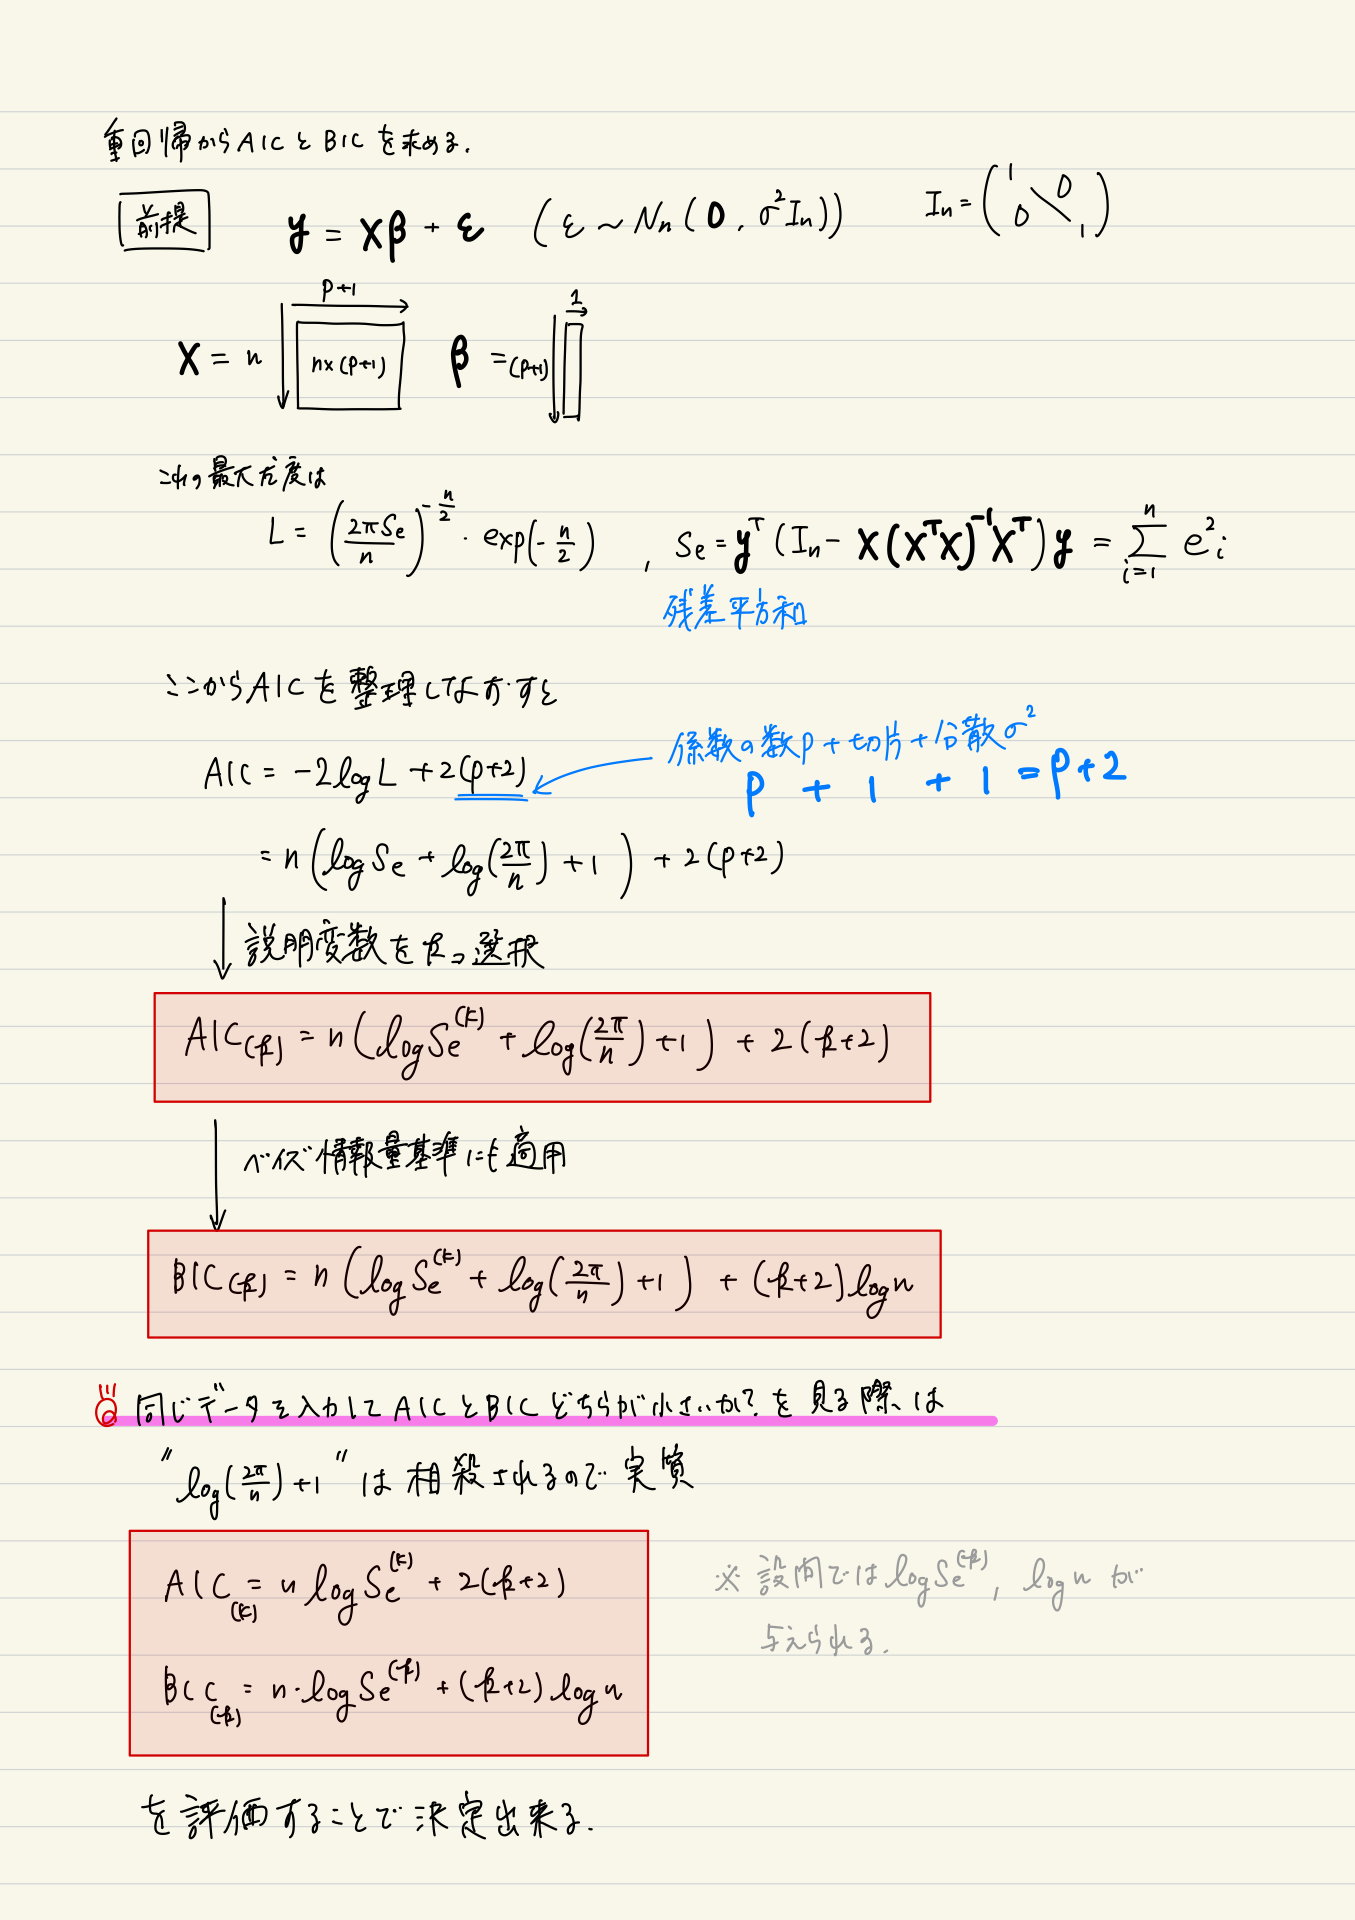 重回帰からAICとBICを求める.
前提 y = Xβ + ε (ε ~ Nn(0, σ²In)) In = (1 0 0 1)
p+1 1
X = n n×(p+1) β = (p+1)
これの最大尤度は
L = (2πSe/n)^(-n/2) · exp(-n/2) , Se = y^T(In - X(X^T X)^(-1) X^T)y = Σ_{i=1}^{n} e²i
残差平方和
ここからAICを整理しなおすと
係数の数p + 切片 + 分散σ²
AIC = -2logL + 2(p+2) p + 1 + 1 = p+2
= n(logSe + log(2π/n) + 1) + 2(p+2)
説明変数をkコ選択
AIC(k) = n(logSe^(k) + log(2π/n) + 1) + 2(k+2)
ベイズ情報量基準にも適用
BIC(k) = n(logSe^(k) + log(2π/n) + 1) + (k+2)logn
同じデータを入力してAICとBICどちらが小さいか?を見る際は
"log(2π/n)+1"は相殺されるので実質
AIC(k) = n logSe^(k) + 2(k+2) ※設問ではlogSe^(k), lognが
与えられる.
BIC(k) = n·logSe^(k) + (k+2)logn
を評価することで決定出来る.